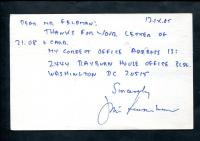 DEAR MR. FELDMAN: 17.IX.85
THANKS FOR YOUR LETTER OF
31.08 & CARD.
MY CORRECT OFFICE ADDRESS IS:
2444 RAYBURN HOUSE OFFICE BLDG.
WASHINGTON DC 20515
Sincerely
Jim